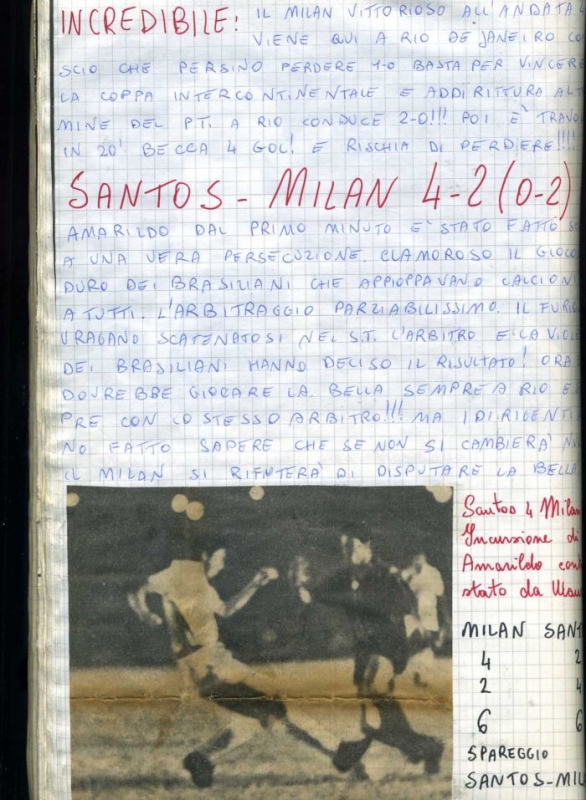 INCREDIBILE: IL MILAN VITTORIOSO ALL'ANDATA
VIENE QUI A RIO DE JANEIRO CO
SCIO CHE PERSINO PERDERE 1-0 BASTA PER VINCERE
LA COPPA INTERCONTINENTALE E ADDIRITTURA AL T
MINE DEL P.T. A RIO CONDUCE 2-0!!! POI E' TRAVO
IN 20' BECCA 4 GOL! E RISCHIA DI PERDERE!!!!
SANTOS - MILAN 4-2 (0-2)
AMARILDO DAL PRIMO MINUTO E' STATO FATTO S
A UNA VERA PERSECUZIONE. CLAMOROSO IL GIOCO
DURO DEI BRASILIANI CHE APPIOPPAVANO CALCIONI
A TUTTI. L'ARBITRAGGIO PARZIABILISSIMO. IL FURIO
URAGANO SCATENATOSI NEL S.T. L'ARBITRO E LA VIOL
DEI BRASILIANI HANNO DECISO IL RISULTATO! ORA
DOVREBBE GIOCARE LA BELLA SEMPRE A RIO E
PRE CON LO STESSO ARBITRO!!! MA I DIRIGENTI
NO FATTO SAPERE CHE SE NON SI CAMBIERA'
IL MILAN SI RIFIUTERA' DI DISPUTARE LA BELLA
Santos 4 Milan
Incursione di
Amarildo con
stato da Mau
MILAN SANT
4 2
2 4
6 6
SPAREGGIO
SANTOS-MIL